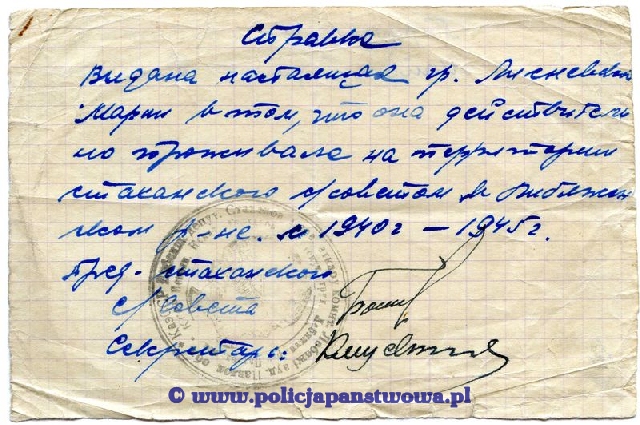 Справка
Видана настаящая гр. Лисневская
Марии в том, что она действитель
но проживала на територии
стаханского с/советом
ском р-не. с 1940 г – 1945 г.
Пред. стаханского
с/Совета
Секретарь:
© www.policjapanstwowa.pl